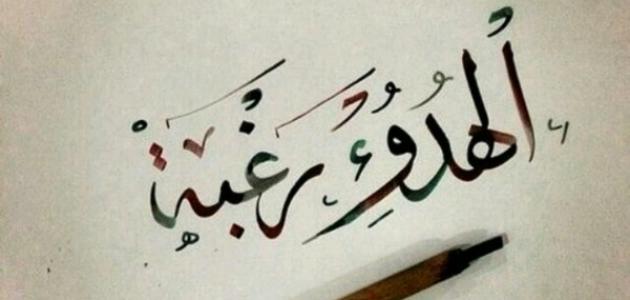 ألهدوء رغبة